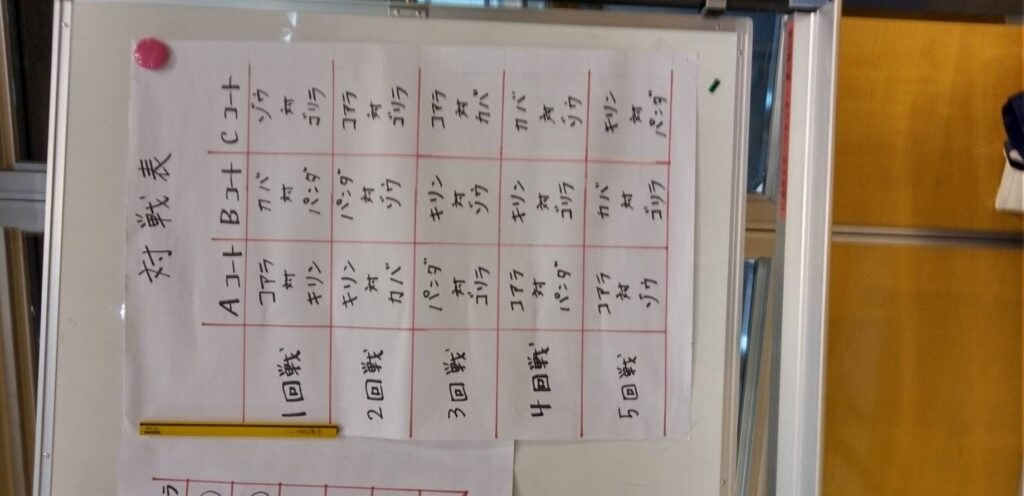 対戦表
Aコート Bコート Cコート
1回戦 コアラ対キリン カバ対パンダ ゾウ対ゴリラ
2回戦 キリン対カバ パンダ対ゾウ コアラ対ゴリラ
3回戦 パンダ対ゴリラ キリン対ゾウ コアラ対カバ
4回戦 コアラ対パンダ キリン対ゴリラ カバ対ゾウ
5回戦 コアラ対ゾウ カバ対ゴリラ キリン対パンダ
ラ